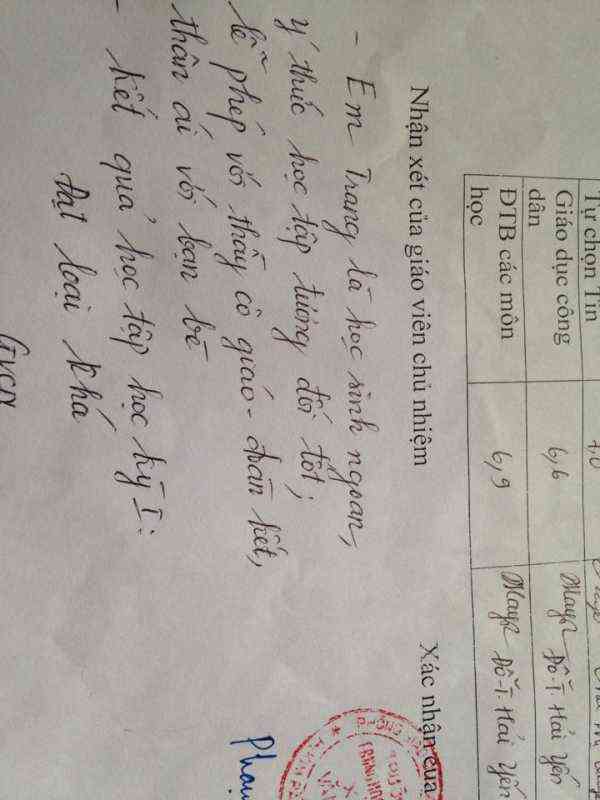 Tự chọn Tin 7,0
Giáo dục công dân 6,6 Đỗ T. Hải Yến
ĐTB các môn học 6,9 Đỗ T. Hải Yến
Nhận xét của giáo viên chủ nhiệm
Xác nhận của
- Em Trang là học sinh ngoan,
ý thức học tập tương đối tốt;
lễ phép với thầy cô giáo - đoàn kết,
thân ái với bạn bè
- Kết quả học tập học kỳ I:
Đạt loại khá
GVCN